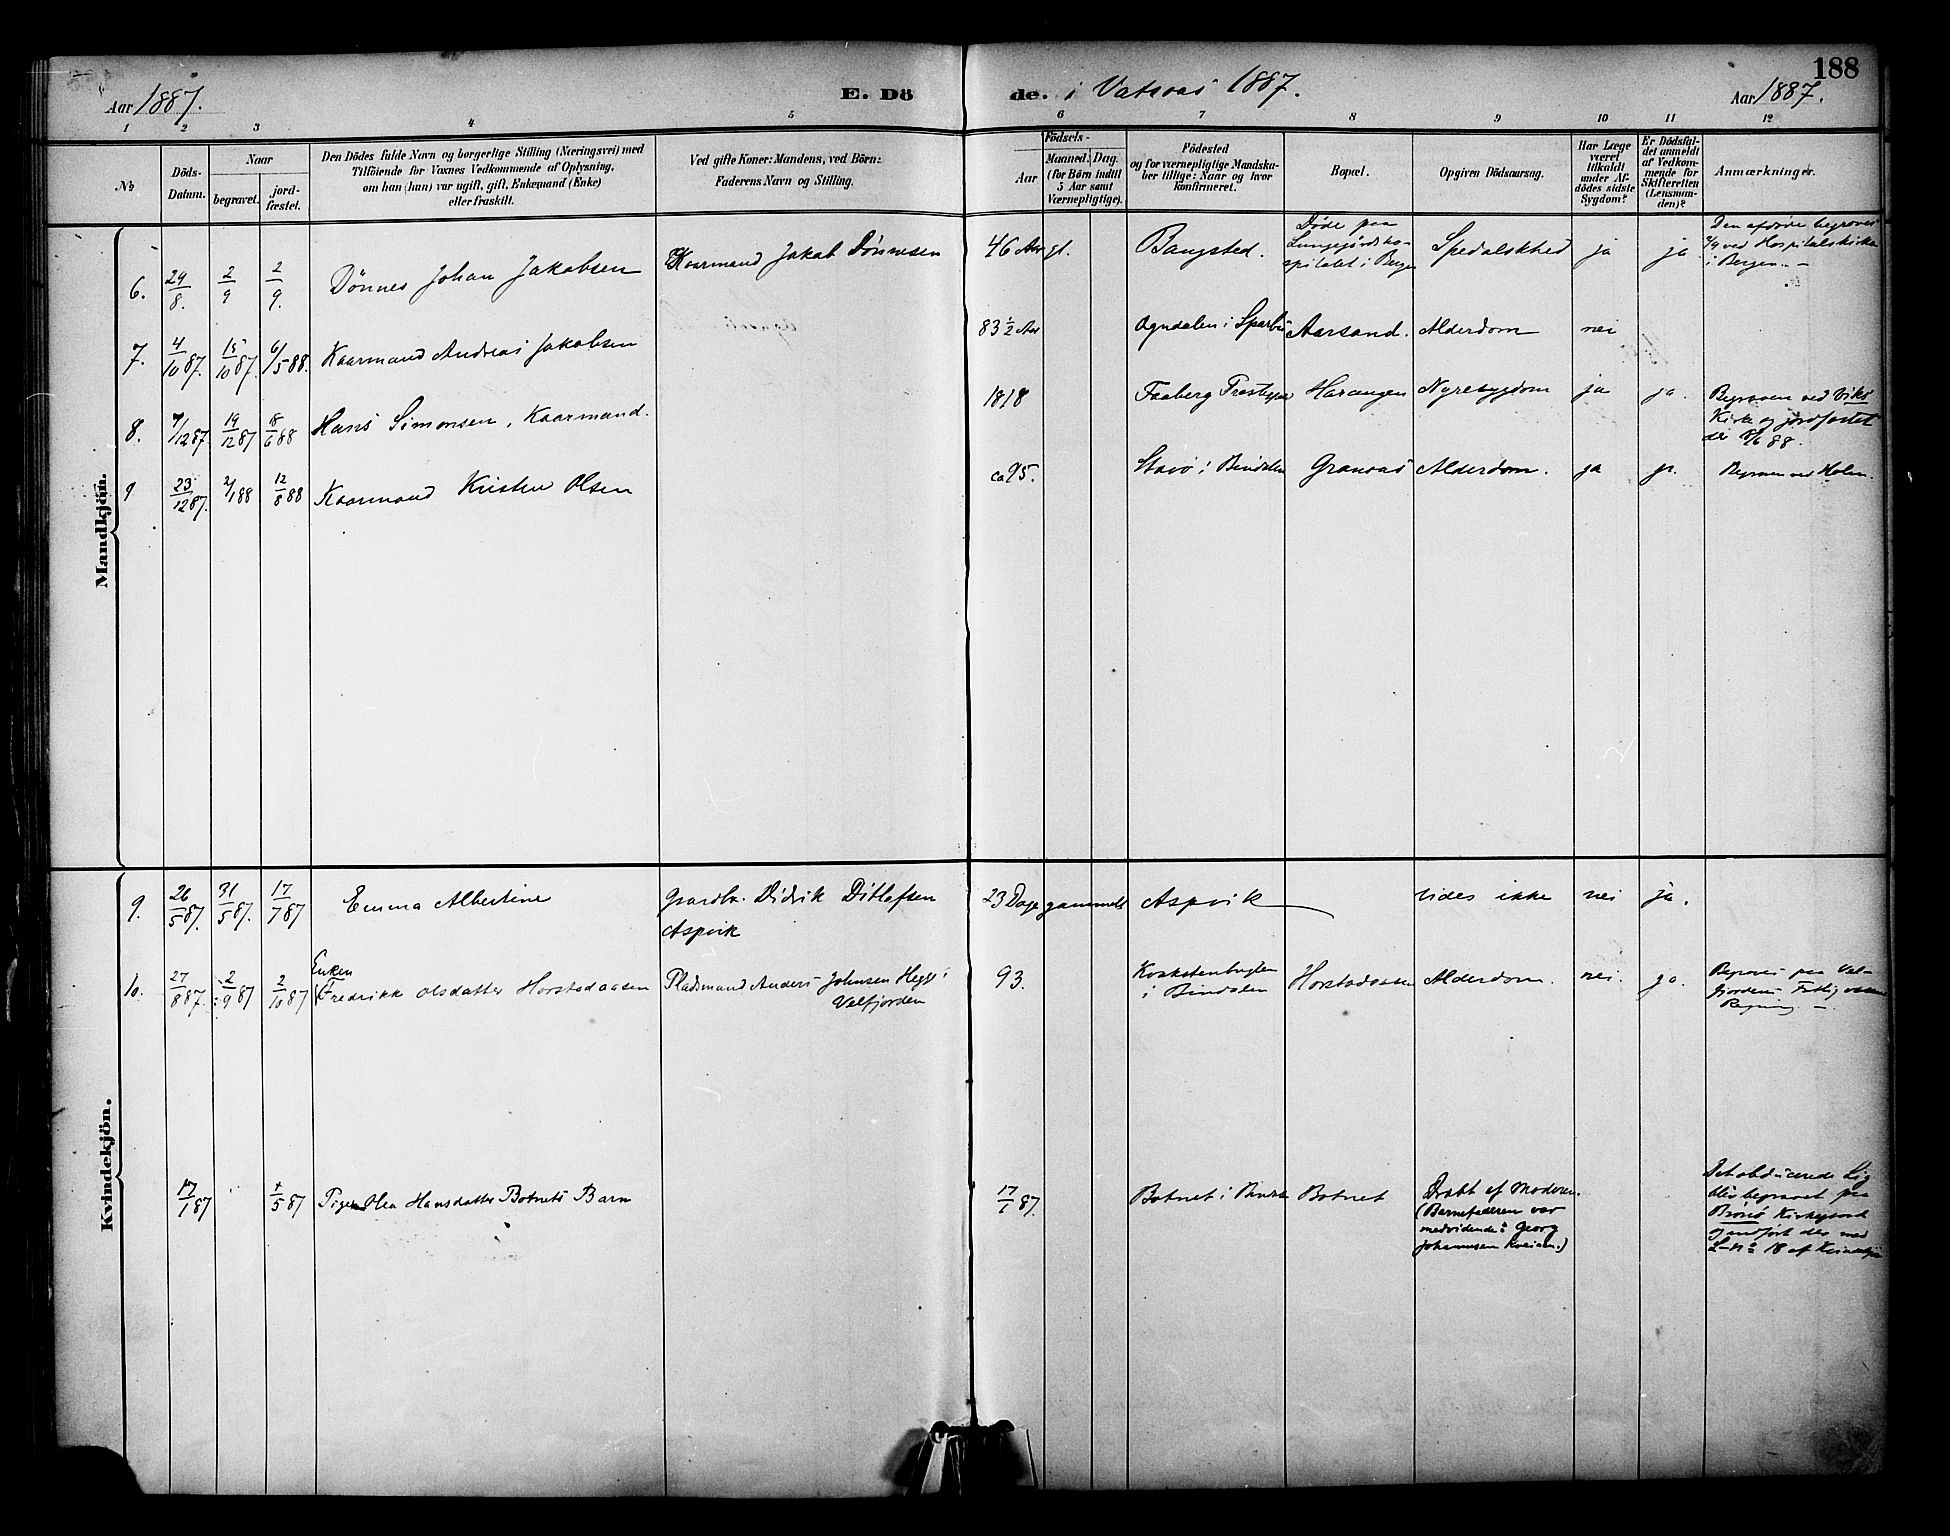 188
Aar 1887.
E. Dö
de. i Vatsaas 1887.
Aar 1887.
1 2 3 4 5 6 7 8 9 10 11 12
№
Döds-
Datum.
Naar
begravet.
jord-
fæstet.
Den Dödes fulde Navn og borgerlige Stilling (Næringsvei) med
Tilföiende for Voxnes Vedkommende af Oplysning,
om han (hun) var ugift, gift, Enkemand (Enke)
eller fraskilt.
Ved gifte Koner: Mandens, ved Börn:
Faderens Navn og Stilling.
Födsels-
Aar
Maaned. Dag.
(for Börn indtil
5 Aar samt
Værnepligtige).
Födested
og for værnepligtige Mandska-
ber tillige: Naar og hvor
konfirmeret.
Bopæl.
Opgiven Dödsaarsag.
Har Læge
været
tilkaldt
under Af-
dödes sidste
Sygdom?
Er Dödsfal-
det anmeldt
af Vedkom-
mende for
Skifteretten
(Lensman-
den)?
Anmærkninger.
Mandkjön.
6. 29/8. 2/9 2/9. Dönnes Johan Jakobsen Kaarmand Jakob Dönnesen 46 Aar gl. Bangsted. Døde paa
Lungegaardsho-
spitalet i Bergen Spedalskhed ja ja Den afdøde begroves
2/9 ved Hospitalskirke
i Bergen. —
7. 4/10 87. 15/10 87. 6/5 88. Kaarmand Andreas Jakobsen 83 ½ Aar Ogndalen i Sparbu Aarsand. Alderdom nei
8. 7/12 87. 19/12 87 18/6 88 Hans Simonsen, Kaarmand. 1818 Faaberg Præstegjæ Harangen Nyresygdom ja ja. Begraven ved Viks
Kirke og jordfæstet
der 18/6 88.
9 23/12 87. 2/1 88 12/8 88 Kaarmand Kristen Olsen ca 95. i Bindalen Granaas Alderdom. ja ja. Begraven ved Holm.
Kvindekjön.
9. 26/5 87. 31/5 87. 17/7 87 Emma Albertine Gaardbr. Didrik Ditlefsen
Aspvik 23 Dage gammelt Aspvik vides ikke nei ja.
10. 27/8 87. 2/9 87 2/10 87 Enken
Fredrikk Olsdatter Horstadaasen Pladsmand Anders Johnsen Hegge i
Velfjorden 93. i Bindalen Horstadaasen Alderdom. nei. ja. Begroves paa Vel-
fjordens Fattigvæsens
Regning —
17/1 87 4/5 87 Pigen Olea Hansdatter Botnets Barn 17/1 87. Botnet i Bindal Botnet Dræbt af Moderen.
(Barnefaderen var
medvidende: Georg
Johannesen Kveium.) Det obducerede Lig
blev begravet paa
Brönö Kirkegaard
og indført der med
L-N: 18 af Kvindekjön